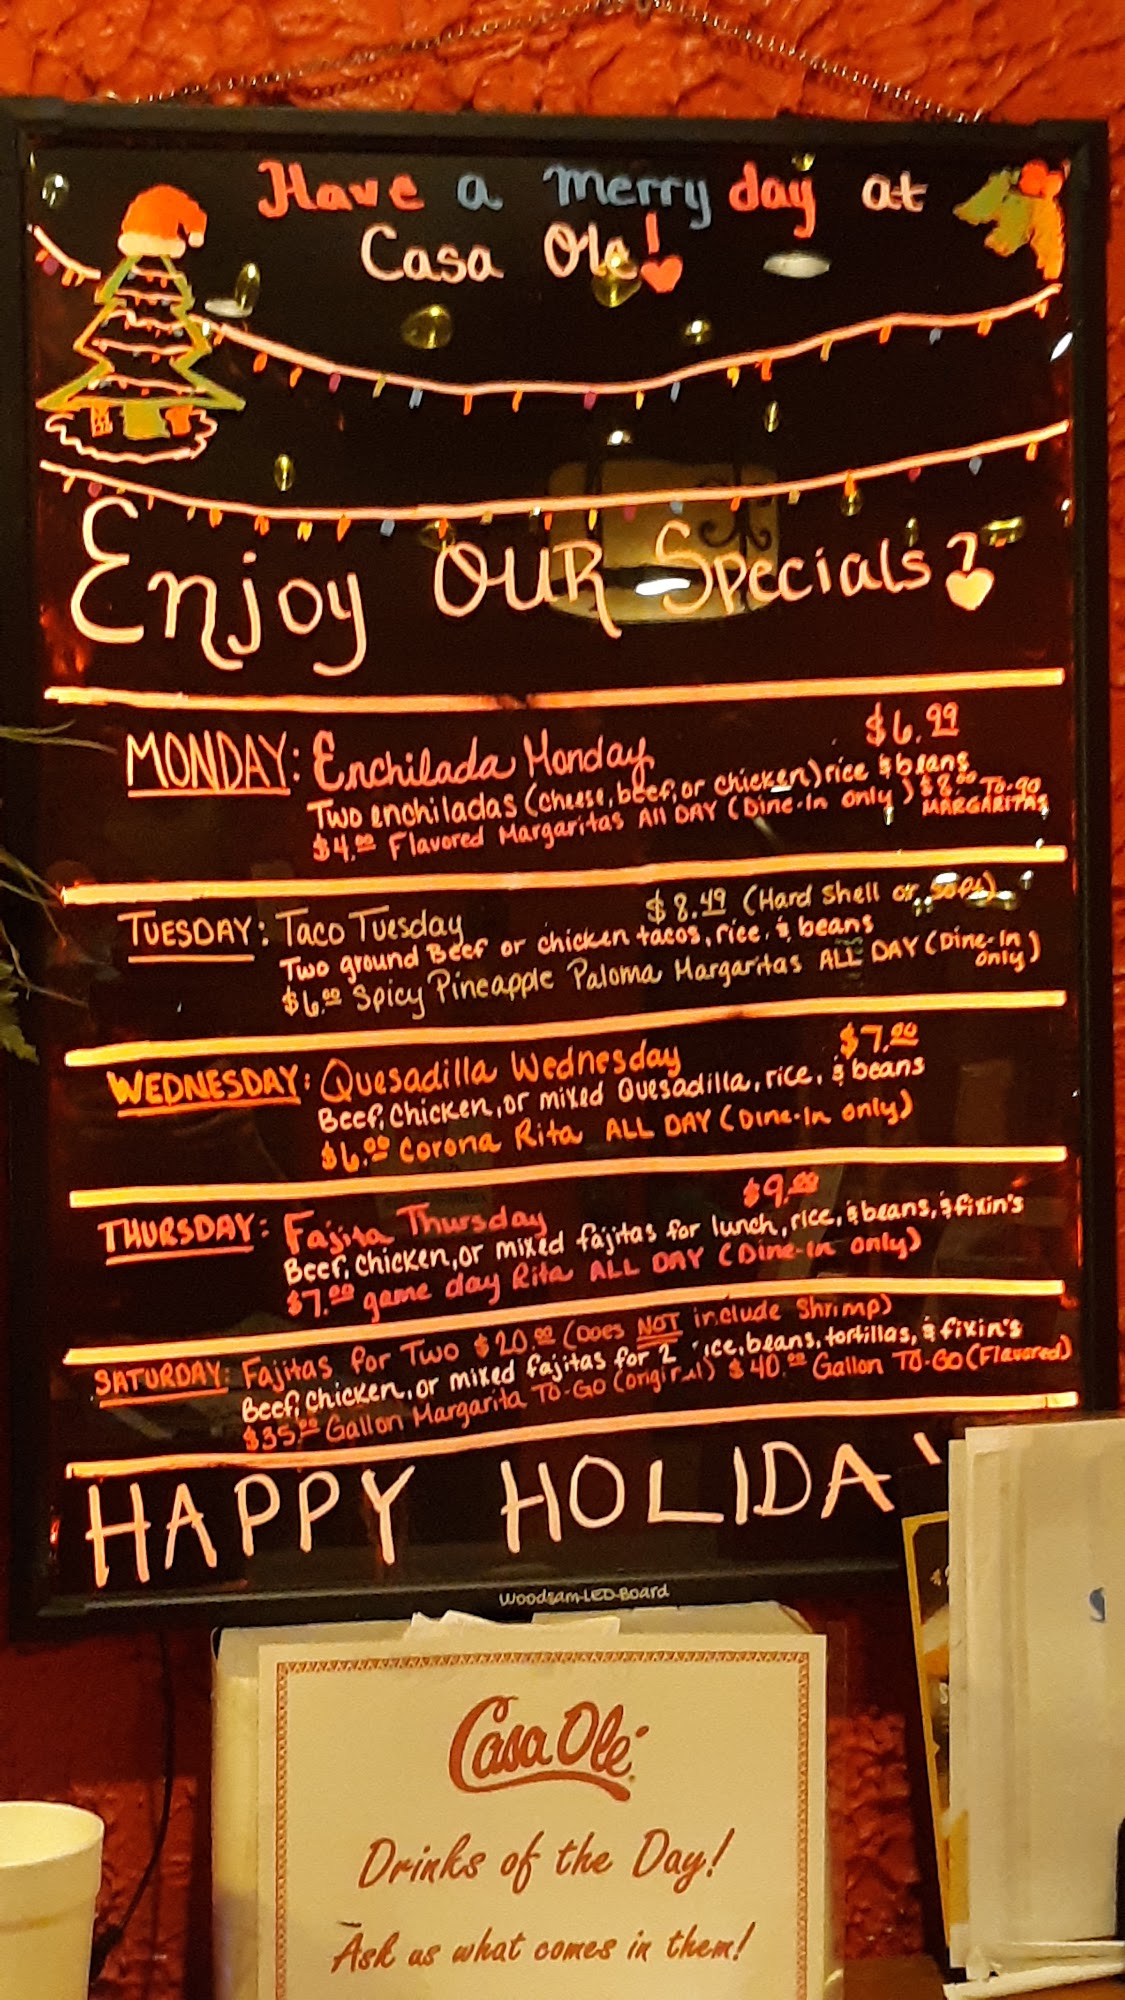 Have a merry day at
Casa Ole!
Enjoy OUR Specials!
MONDAY: Enchilada Monday $6.99
Two enchiladas (cheese, beef, or chicken) rice & beans
$4.00 Flavored Margaritas All DAY (Dine-In only) $8.00 To-go
MARGARITAS
TUESDAY: Taco Tuesday $8.49 (Hard Shell or Soft)
Two ground Beef or chicken tacos, rice, & beans
$6.00 Spicy Pineapple Paloma Margaritas ALL DAY (Dine-In
only)
WEDNESDAY: Quesadilla Wednesday $7.00
Beef, Chicken, or mixed Quesadilla, rice, & beans
$6.00 Corona Rita ALL DAY (Dine-In only)
THURSDAY: Fajita Thursday $9.00
Beef, Chicken, or mixed fajitas for lunch, rice, & beans, & fixin's
$7.00 game day Rita ALL DAY (Dine-In only)
SATURDAY: Fajitas for Two $20.00 (Does NOT include Shrimp)
Beef, Chicken, or mixed fajitas for 2 ice, beans, tortillas, & fixin's
$35.00 Gallon Margarita TO-GO (original) $40.00 Gallon TO-GO (Flavored)
HAPPY HOLIDA
Woodsam-LED-Board
Casa Olé
Drinks of the Day!
Ask us what comes in them!